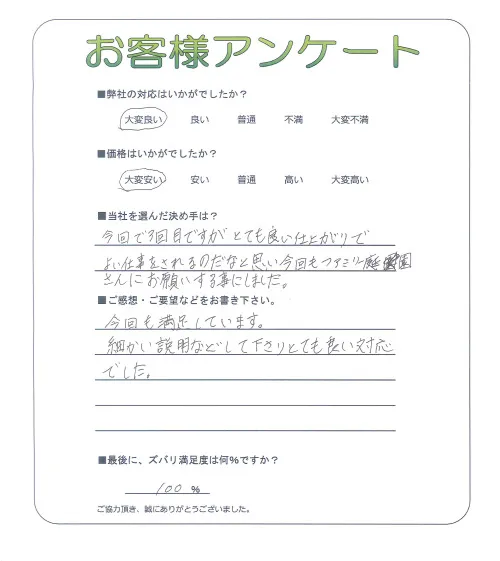 お客様アンケート
■弊社の対応はいかがでしたか？
大変良い 良い 普通 不満 大変不満
■価格はいかがでしたか？
大変安い 安い 普通 高い 大変高い
■当社を選んだ決め手は？
今回で3回目ですが とても良い仕上がりで
よい仕事をされるのだなと思い今回もファミリー庭園
さんにお願いする事にしました。
■ご感想・ご要望などをお書き下さい。
今回も満足しています。
細かい説明などして下さりとても良い対応
でした。
■最後に、ズバリ満足度は何%ですか？
100 %
ご協力頂き、誠にありがとうございました。